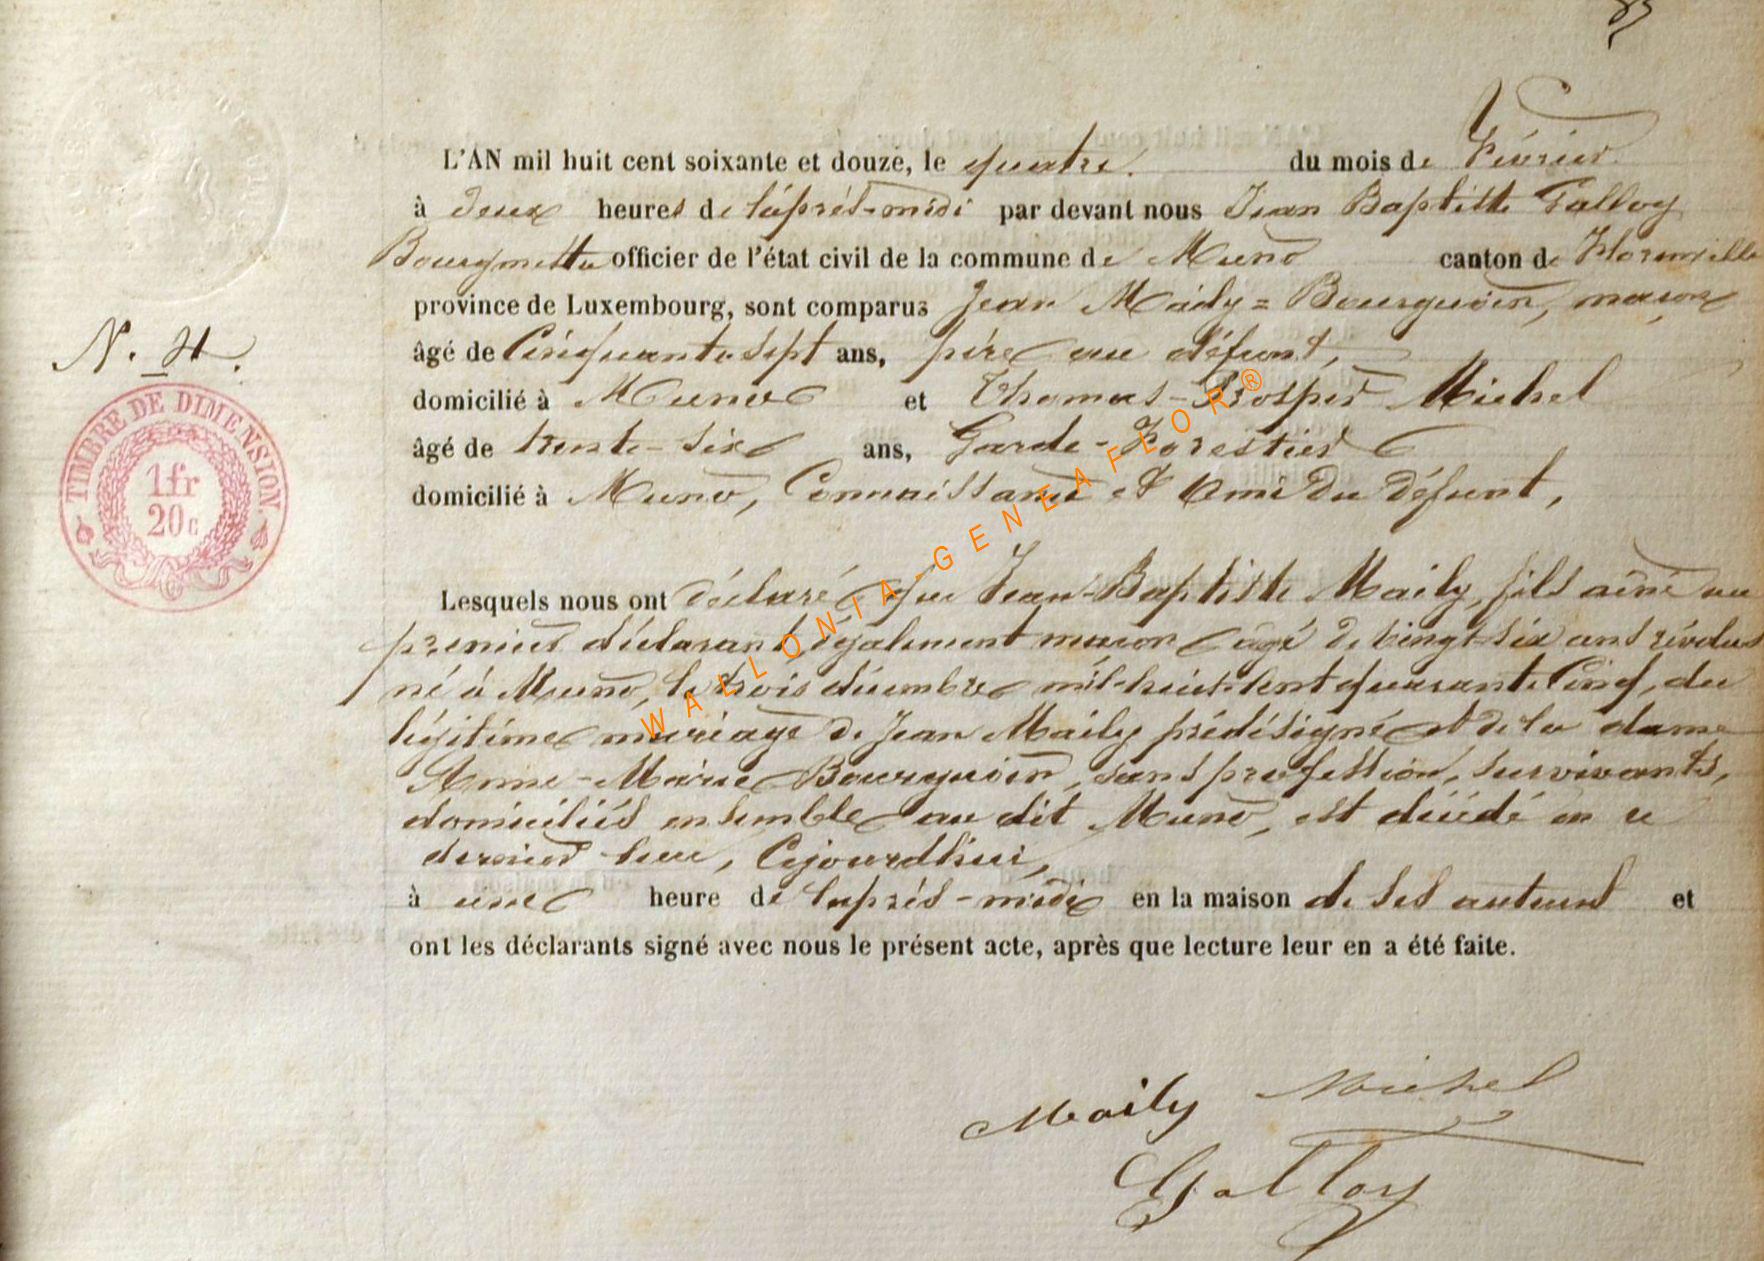 L'AN mil huit cent soixante et douze, le quatre. du mois de Février.
à deux heures de l'après-midi par devant nous Jean Baptiste Falloy
Bourgmestre officier de l'état civil de la commune de Muno canton de Florenville
province de Luxembourg, sont comparus Jean Maily=Bourguoin, maçon
N. 4.
âgé de Cinquante-sept ans, père au défunt,
domicilié à Muno et Thomas-Prosper Michel
âgé de trente-six ans, Garde-Forestier
domicilié à Muno, Connaissance et Ami du défunt,
TIMBRE DE DIMENSION.
1 fr
20 c
Lesquels nous ont déclaré que Jean-Baptiste Maily, fils aîné au
premier déclarant, également maçon âgé de vingt-six ans révolus
né à Muno, le trois décembre mil-huit-cent quarante Cinq, du
légitime mariage de Jean Maily prédésigné et de la dame
Anne-Marie Bourguoin, sans profession, survivants,
domiciliés ensemble au dit Muno, est décédé en ce
dernier lieu, Cejourd'hui,
à une heure de l'après-midi en la maison de ses auteurs et
ont les déclarants signé avec nous le présent acte, après que lecture leur en a été faite.
Maily Michel
Falloy
WALLONIA-GENEAFLOR®